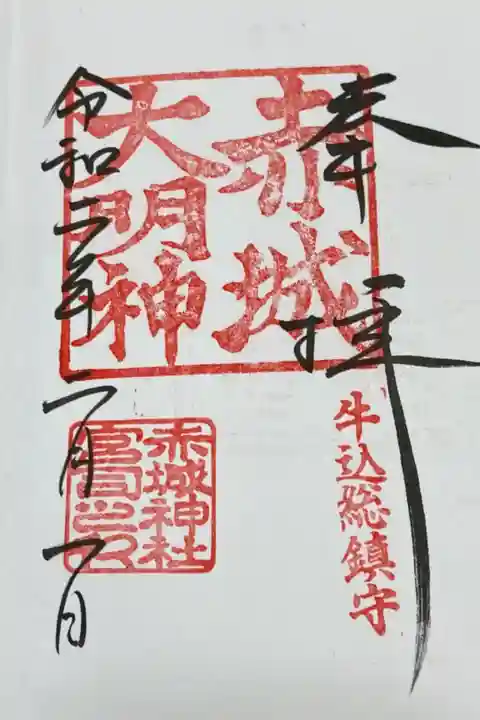 奉拝
赤城
大明神
牛込総鎮守
赤城神社
宮司之印
令和二年二月一日